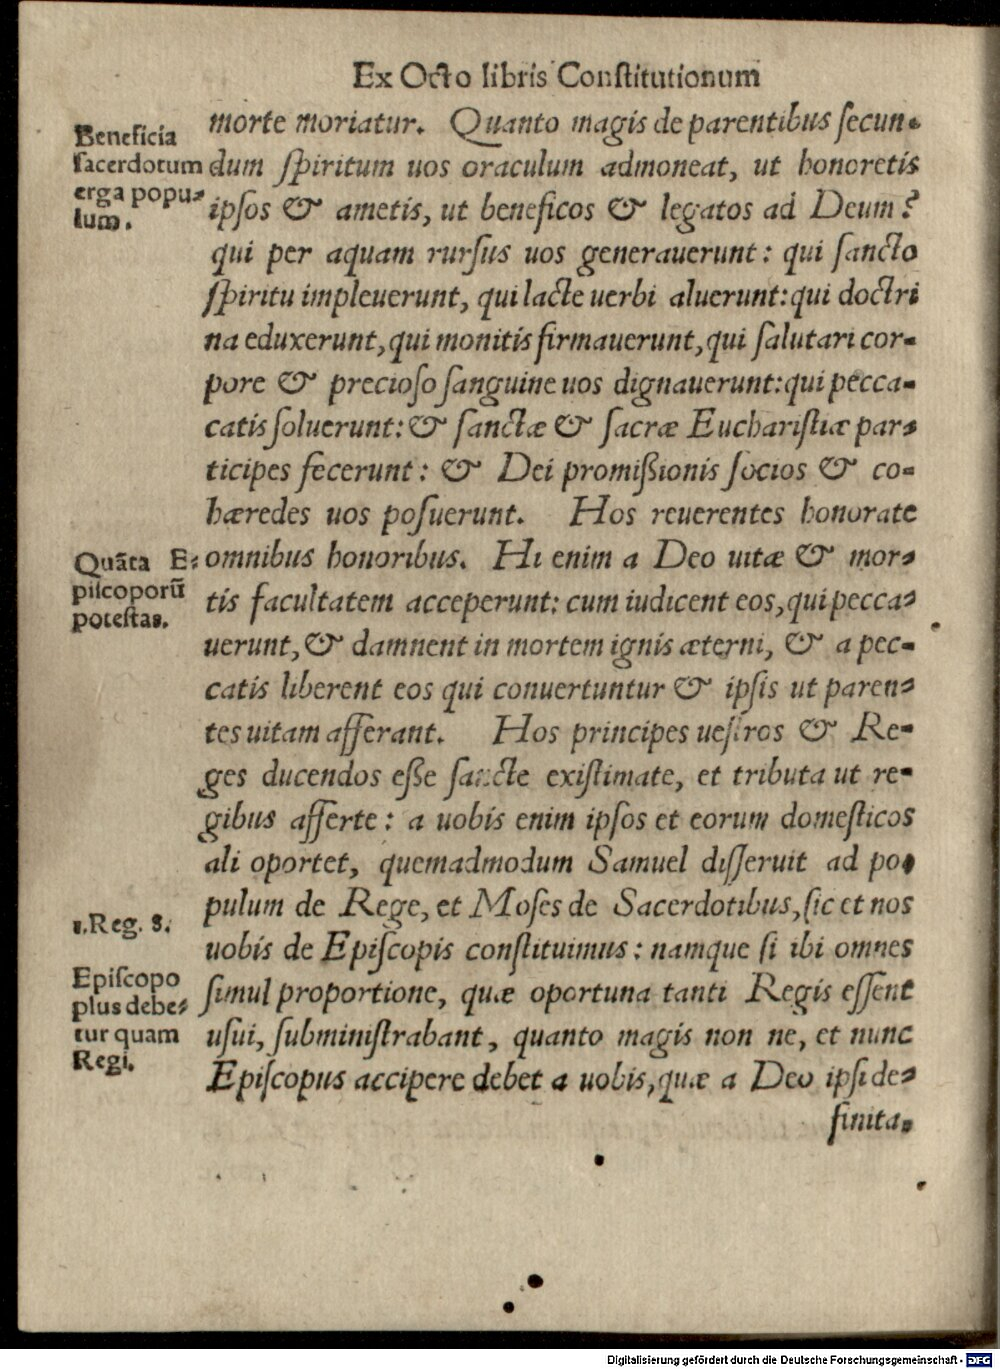 Ex Octo libris Constitutionum
Beneficia
sacerdotum
erga popu⸗
lum.
morte moriatur. Quanto magis de parentibus secun⸗
dum spiritum uos oraculum admoneat, ut honoretis
ipsos & ametis, ut beneficos & legatos ad Deum?
qui per aquam rursus uos generauerunt: qui sancto
spiritu impleuerunt, qui lacte uerbi aluerunt: qui doctri
na eduxerunt, qui monitis firmauerunt, qui salutari cor⸗
pore & precioso sanguine uos dignauerunt: qui pecca⸗
catis soluerunt: & sanctæ & sacræ Eucharistiæ par⸗
ticipes fecerunt: & Dei promißionis socios & co⸗
hæredes uos posuerunt. Hos reuerentes honorate
Quãta E⸗
piscoporũ
potestas.
omnibus honoribus. Hi enim a Deo uitæ & mor⸗
tis facultatem acceperunt: cum iudicent eos, qui pecca⸗
uerunt, & damnent in mortem ignis æterni, & a pec⸗
catis liberent eos qui conuertuntur & ipsis ut paren⸗
tes uitam afferant. Hos principes uestros & Re⸗
ges ducendos eße sancte existimate, et tributa ut re⸗
gibus afferte: a uobis enim ipsos et eorum domesticos
ali oportet, quemadmodum Samuel disseruit ad po⸗
pulum de Rege, et Moses de Sacerdotibus, sic et nos
1. Reg. 8.
uobis de Episcopis constituimus: namque si ibi omnes
Episcopo
plus debe⸗
tur quam
Regi.
simul proportione, quæ oportuna tanti Regis essent
usui, subministrabant, quanto magis non ne, et nunc
Episcopus accipere debet a uobis, quæ a Deo ipsi de⸗
finita.
Digitalisierung gefördert durch die Deutsche Forschungsgemeinschaft - DFG